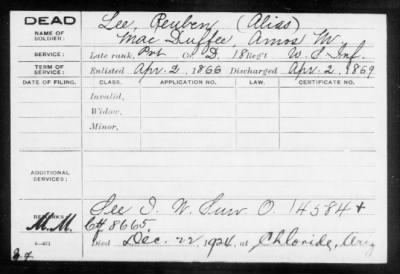 DEAD
NAME OF SOLDIER:
Lee, Reuben (Alias)
Mac Duffee, Amos M.
SERVICE:
Late rank, Pvt Co. D. 18 Regt U. S. Inf.
TERM OF SERVICE:
Enlisted Apr. 2, 1866 Discharged Apr. 2, 1869
DATE OF FILING. CLASS. APPLICATION NO. LAW. CERTIFICATE NO.
Invalid,
Widow,
Minor,
ADDITIONAL SERVICES:
See I. W. Surv O. 14584 +
REMARKS:
M.M. 8665.
Died Dec. 22, 1924, at Chloride, Ariz